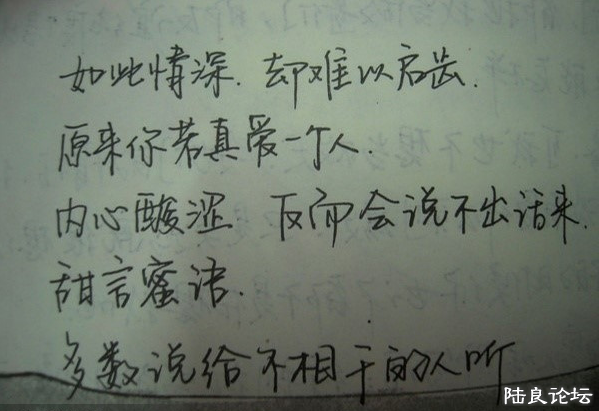 如此情深. 却难以启齿.
原来你若真爱一个人.
内心酸涩 反而会说不出话来.
甜言蜜语.
多数说给不相干的人听
陆良论坛